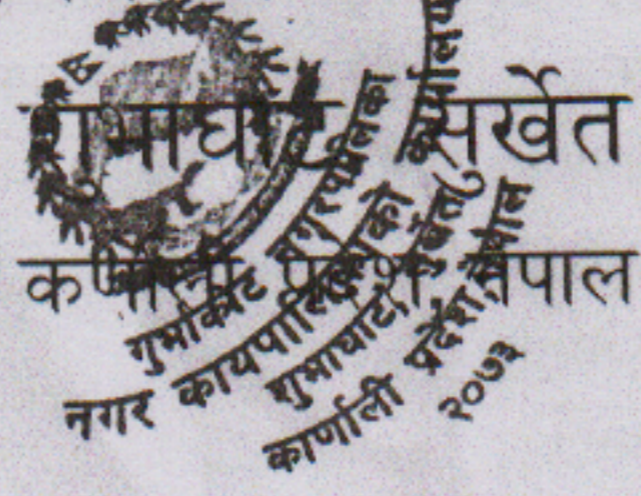 शुभाघाट, सुर्खेत
कर्णाली प्रदेश, नेपाल
गुर्भाकोट नगरपालिका
नगर कार्यपालिकाको कार्यालय
शुभाघाट, सुर्खेत
कार्णाली प्रदेश, नेपाल
२०७३